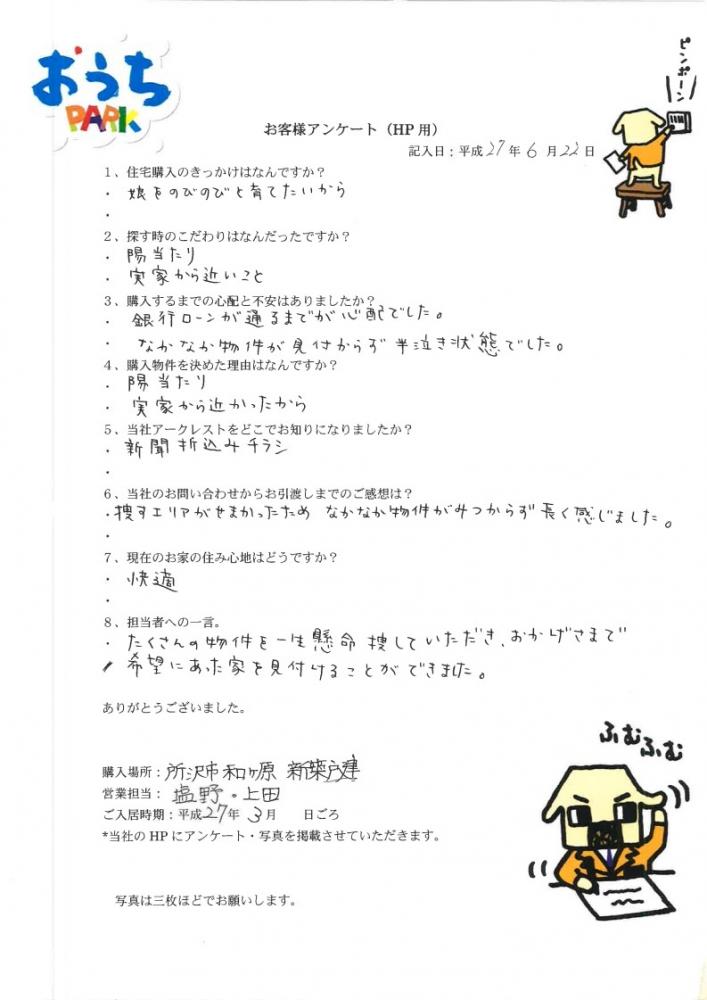 おうち
PARK
ピンポーン
お客様アンケート（HP用）
記入日：平成27年6月22日
1、住宅購入のきっかけはなんですか？
・娘をのびのびと育てたいから
・
2、探す時のこだわりはなんだったですか？
・陽当たり
・実家から近いこと
3、購入するまでの心配と不安はありましたか？
・銀行ローンが通るまでが心配でした。
・なかなか物件が見付からず半泣き状態でした。
4、購入物件を決めた理由はなんですか？
・陽当たり
・実家から近かったから
5、当社アークレストをどこでお知りになりましたか？
・新聞折込みチラシ
・
6、当社のお問い合わせからお引渡しまでのご感想は？
・捜すエリアがせまかったため なかなか物件がみつからず長く感じました。
・
7、現在のお家の住み心地はどうですか？
・快適
・
8、担当者への一言。
・たくさんの物件を一生懸命捜していただき、おかげさまで
・希望にあった家を見付けることができました。
ありがとうございました。
ふむふむ
購入場所：所沢市和ヶ原 新築戸建
営業担当：塩野・上田
ご入居時期：平成27年 3月 日ごろ
*当社のHPにアンケート・写真を掲載させていただきます。
写真は三枚ほどでお願いします。